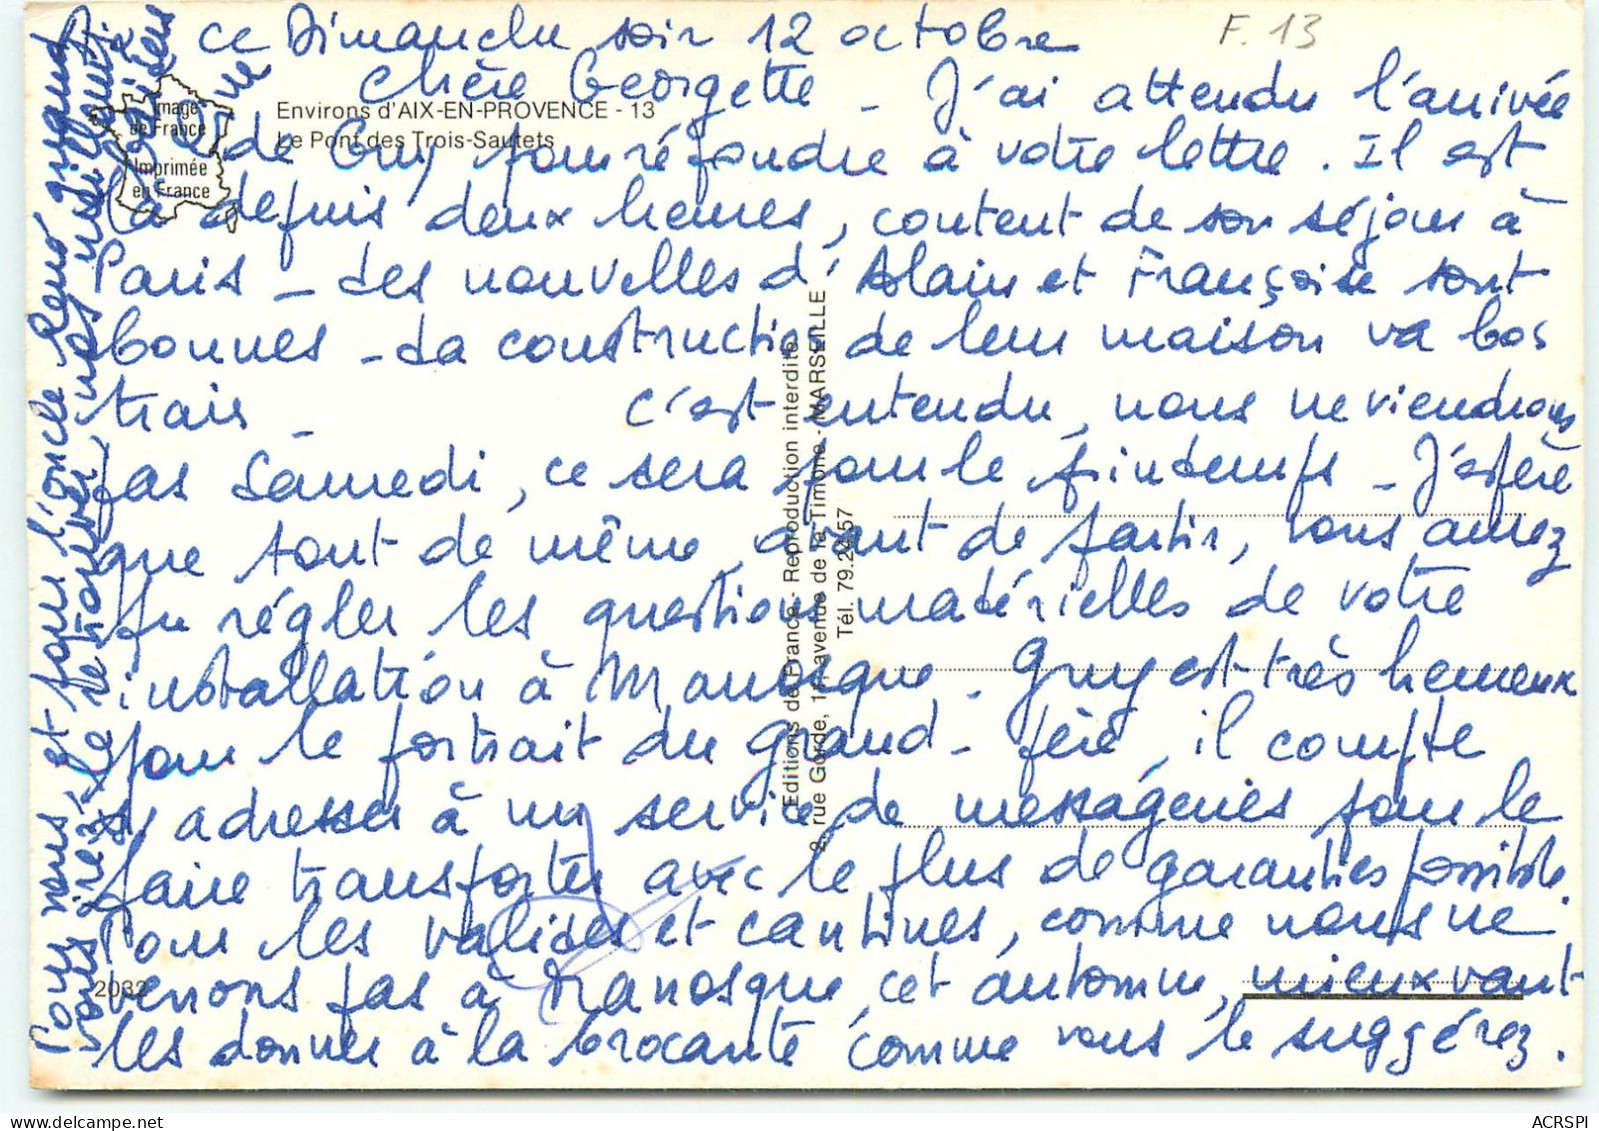 ce Dimanche soir 12 octobre
F. 13
Chère Georgette _ J'ai attendu l'arrivée
Image
de France
Imprimée
en France
Environs d'AIX-EN-PROVENCE - 13
Le Pont des Trois-Sautets
de Guy pour répondre à votre lettre. Il est
là depuis deux heures, content de son séjour à
Paris _ Les nouvelles d'Alain et Françoise sont
bonnes _ La construction de leur maison va bon
train _ C'est entendu, nous ne viendrons
pas Samedi, ce sera pour le printemps _ J'espère
que tout de même, avant de partir, vous aurez
pu régler les questions matérielles de votre
installation à Manosque _ Guy est très heureux
pour le portrait du grand-père, il compte
s'adresser à un service de messageries pour le
faire transporter avec le plus de garanties possible.
Pour les valises et cantines, comme nous ne
venons pas à Manosque, cet automne, mieux vaut
les donner à la brocante comme vous le suggérez.
2032
Editions de France - Reproduction interdite
2, rue Gorde, 1 avenue de la Timone - MARSEILLE
Tél. 79.24.57
Pour nous et pour l'oncle Reno quand
vous irez le retrouver, nos meilleurs